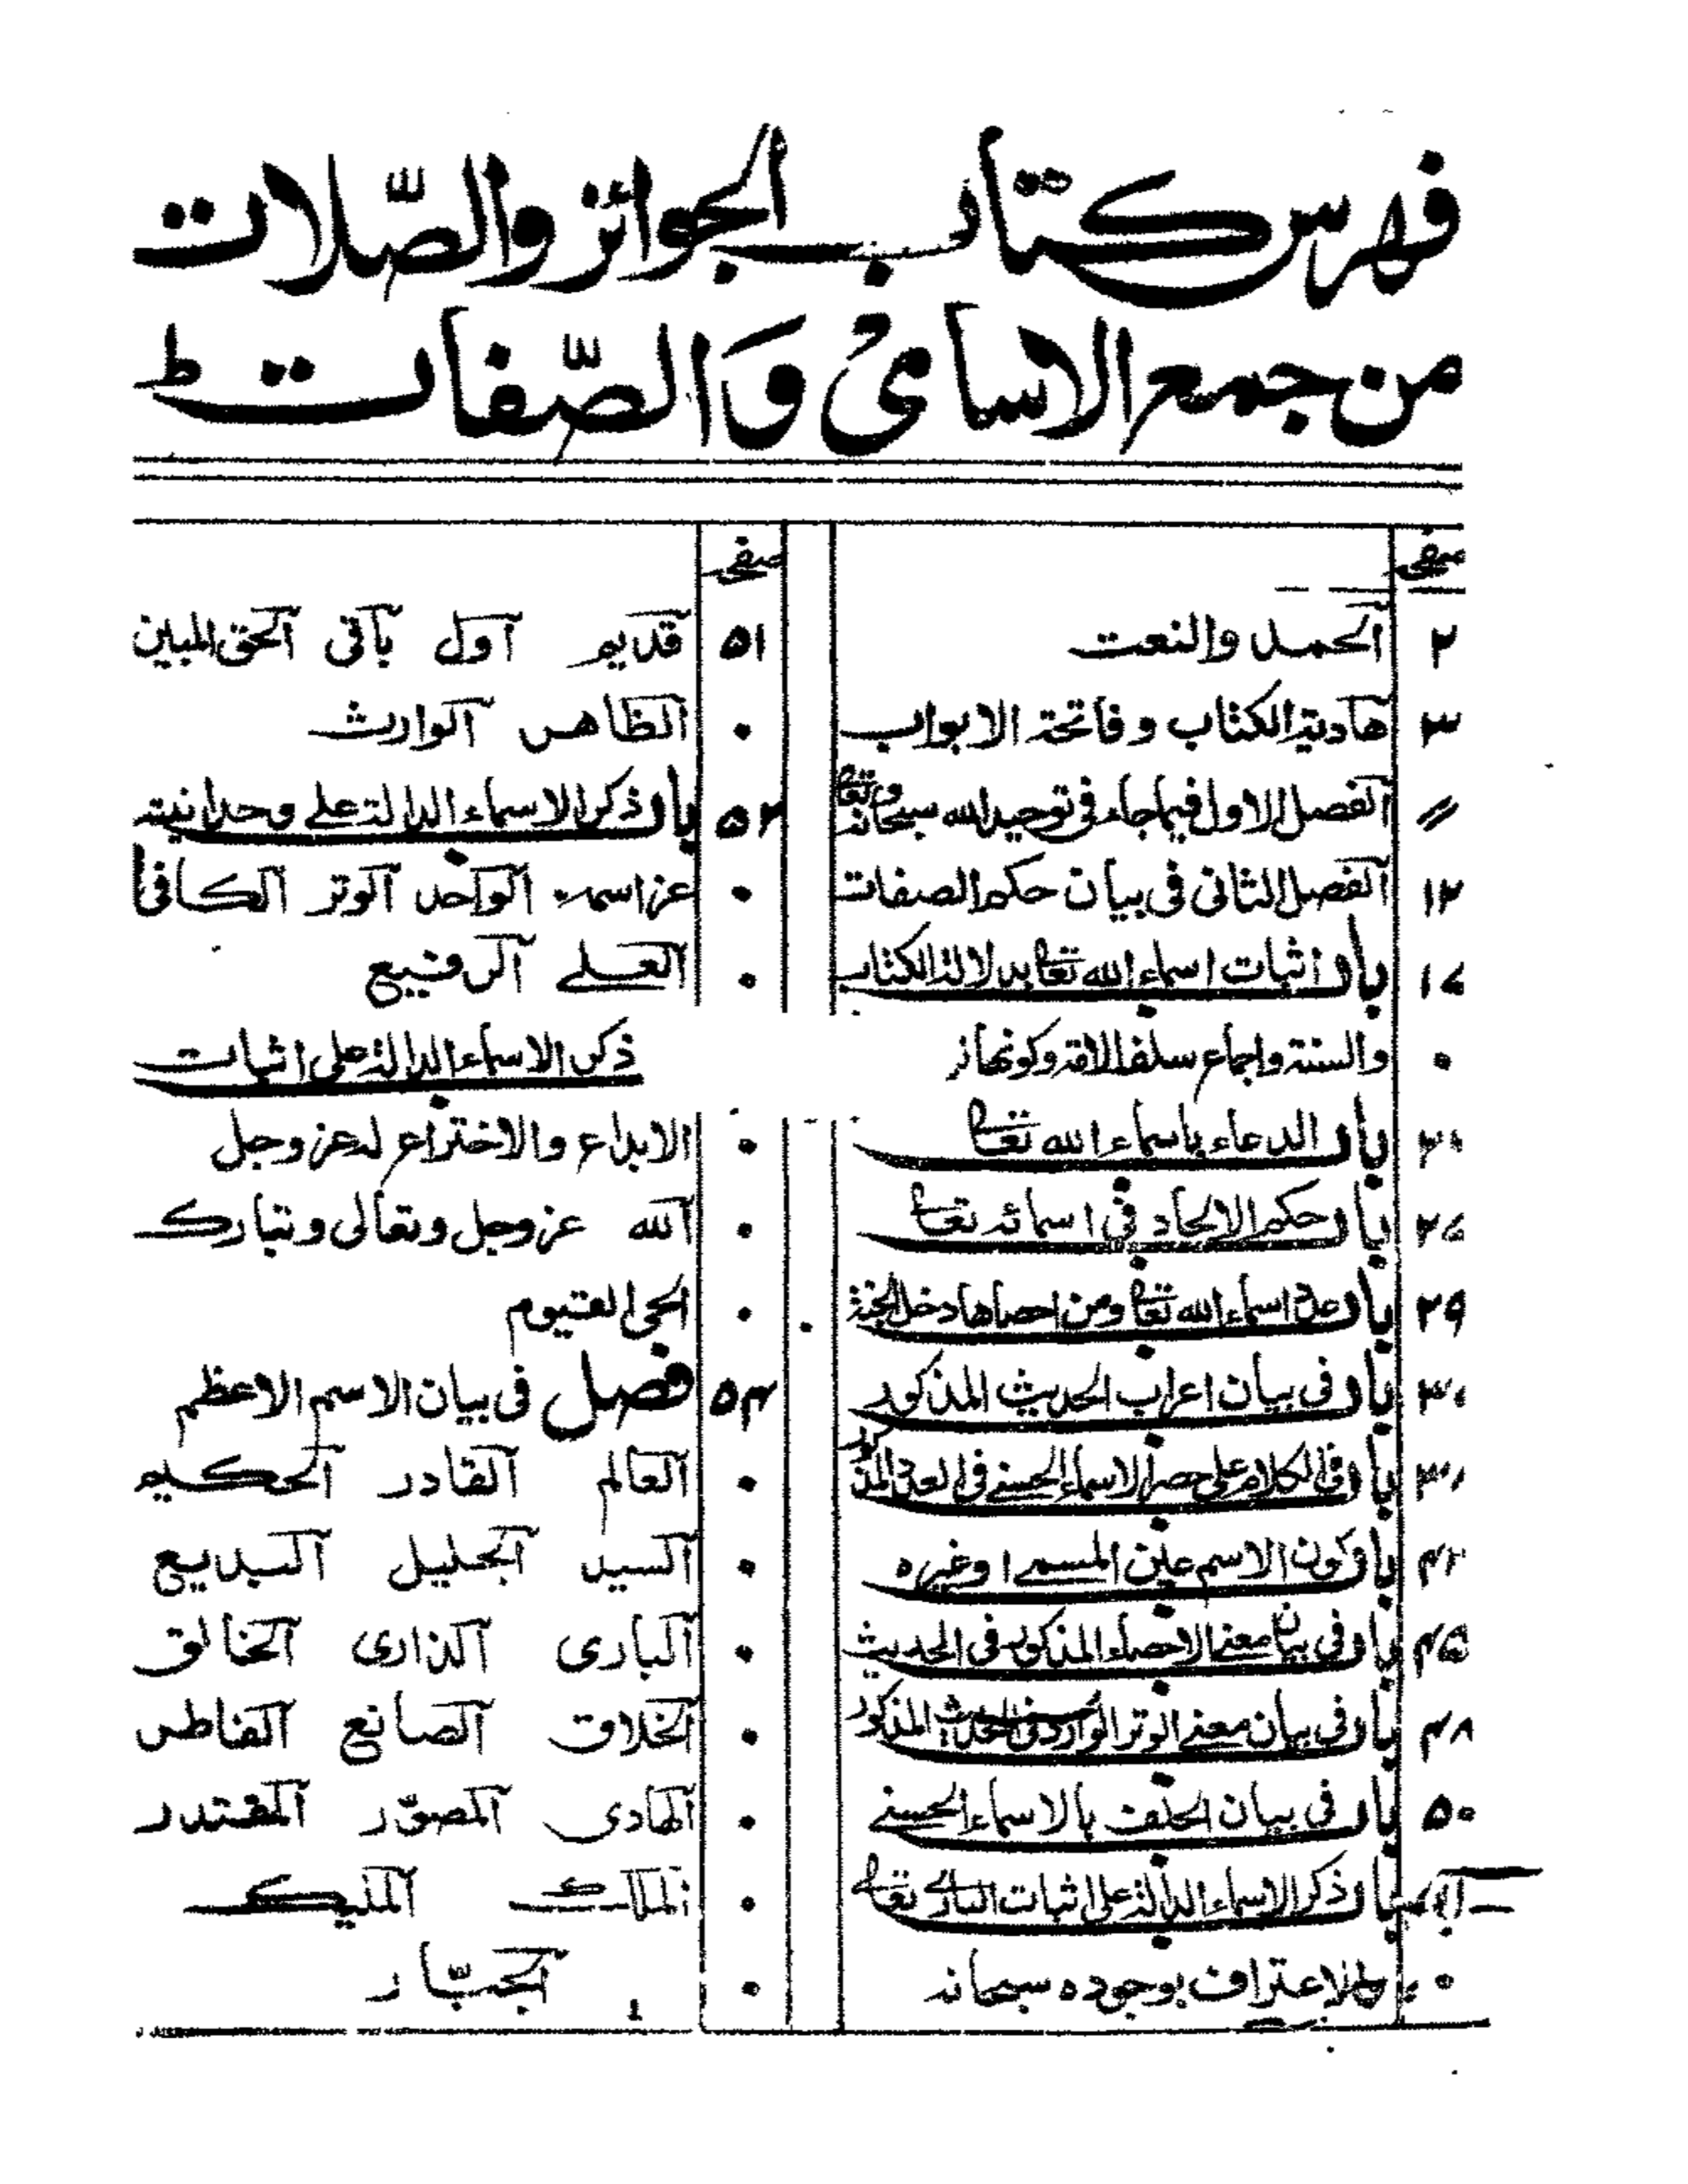 فهرس كتاب الجوائز والصّلات
من جمع الاسامي وَالصّفات ط
صفحہ
٢ آلحمد والنعت
٣ هادية الكتاب و فاتحة الابواب
〃 آلفصل الاول فيما جاء فى توحيد الله سبحانه و تعالى
١٢ آلفصل الثانى فى بيان حكم الصفات
١٧ باب اثبات اسماء الله تعالى بدلالة الكتاب
٠ والسنة واجماع سلف الامة وكونها
باب الدعاء باسماء الله تعالى
٢٧ باب حكم الالحاد فى اسمائه تعالى
٢٩ باب عدد اسماء الله تعالى ومن احصاها دخل الجنة
٣٠ باب فى بيان اعراب الحديث المذكور
باب فى الكلام على حصر الاسماء الحسنے فى العدد المذكور
٤٢ باب كون الاسم عين المسمے او غيره
٤٥ باب فى بيان معنے الاحصاء المذكور فى الحديث
٤٨ باب فى بيان معنے الوتر الوارد فى الحديث المذكور
٥٠ باب فى بيان الحلف بالاسماء الحسنے
باب ذكر الاسماء الدالة على اثبات البارے تعالى
٠ والاعتراف بوجوده سبحانه
صفحہ
٥١ قديم آول باقى آلحق المبين
٠ آلظاهر آلوارث
٥٢ باب ذكر الاسماء الدالة علے وحدانيته
٠ عز اسمه آلواحد آلوتر آلكافى
٠ آلعلے آلرفيع
ذكر الاسماء الدالة على اثبات
٠ الابداع والاختراع له عز وجل
٠ آلله عز وجل وتعالى وتبارك
٠ الحى القيوم
٥٤ فصل فى بيان الاسم الاعظم
٠ آلعالم آلقادر آلحكيم
٠ آلسيد آلجليل آلبديع
٠ آلبارى آلذارى آلخالق
٠ آلخلاق آلصانع آلفاطر
٠ آلهادى آلمصوّر آلمقتدر
٠ آلملك آلمليك
٠ آلجبّار